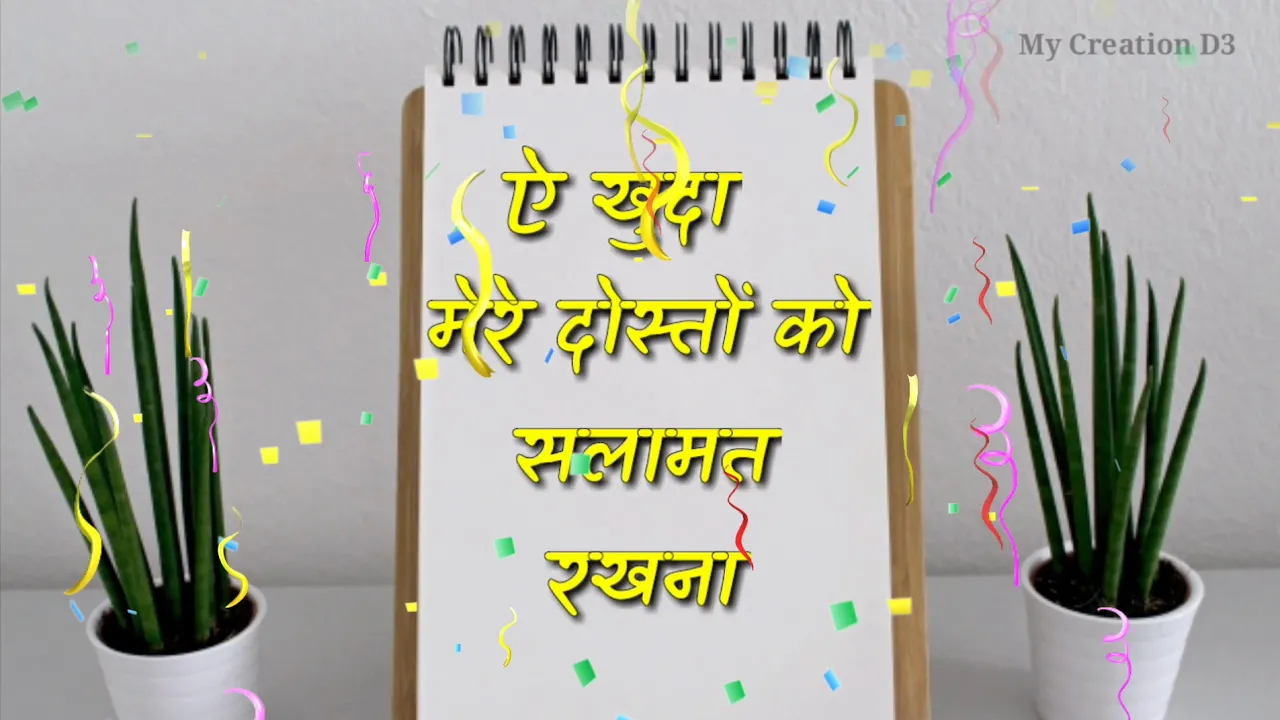 My Creation D3
ऐ खुदा
मेरे दोस्तों को
सलामत
रखना